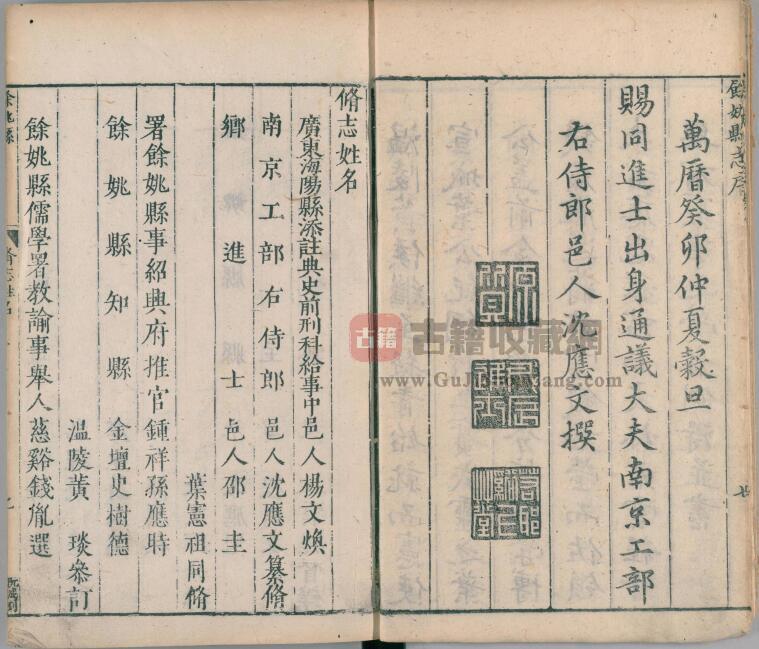 餘姚縣志序
萬曆癸卯仲夏穀旦
賜同進士出身通議大夫南京工部
右侍郎邑人沈應文撰
脩志姓名
廣東海陽縣添註典史前刑科給事中邑人楊文煥
南京工部右侍郎邑人沈應文纂脩
鄉進士邑人邵圭
葉憲祖同脩
署餘姚縣事紹興府推官鍾祥孫應時
餘姚縣知縣金壇史樹德
溫陵黃琰叅訂
餘姚縣儒學署教諭事舉人慈谿錢胤選
餘姚縣
脩志姓名
古籍
古籍收藏網